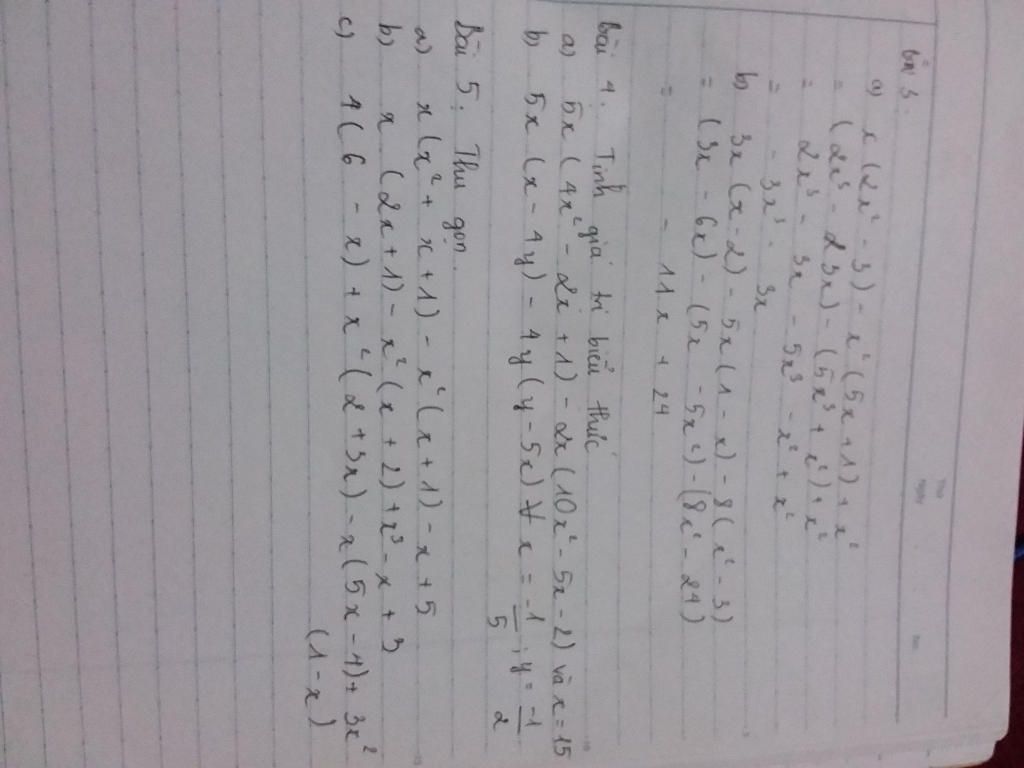 bài 3.
a) x (2x² - 3) - x² (5x + 1) + x²
= (2x³ - 2 3x) - (5x³ + x²) + x²
= 2x³ - 3x - 5x³ - x² + x²
= - 3x³ - 3x
b) 3x (x - 2) - 5x (1 - x) - 8 (x² - 3)
= (3x - 6x) - (5x - 5x²) - (8x² - 24)
= - 11x + 24
Bài 4. Tính giá trị biểu thức
a) 5x (4x² - 2x + 1) - 2x (10x² - 5x - 2) và x = 15
b) 5x (x - 4y) - 4y (y - 5x) ∀ x = -1/5 ; y = -1/2
Bài 5: Thu gọn.
a) x (x² + x + 1) - x² (x + 1) - x + 5
b) x (2x + 1) - x² (x + 2) + x³ - x + 3
c) 4 (6 - x) + x² (2 + 3x) - x (5x - 4) + 3x²
(1 - x)